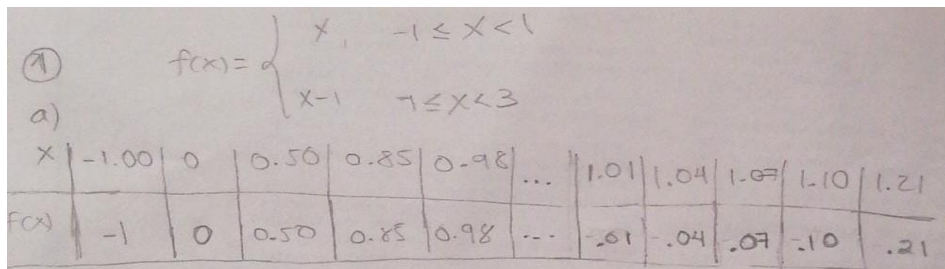 ① f(x) = { x, -1 ≤ x < 1
x-1 1 ≤ x < 3
a)
x | -1.00 | 0 | 0.50 | 0.85 | 0.98 | ... | 1.01 | 1.04 | 1.07 | 1.10 | 1.21
f(x) | -1 | 0 | 0.50 | 0.85 | 0.98 | ... | .01 | .04 | .07 | .10 | .21